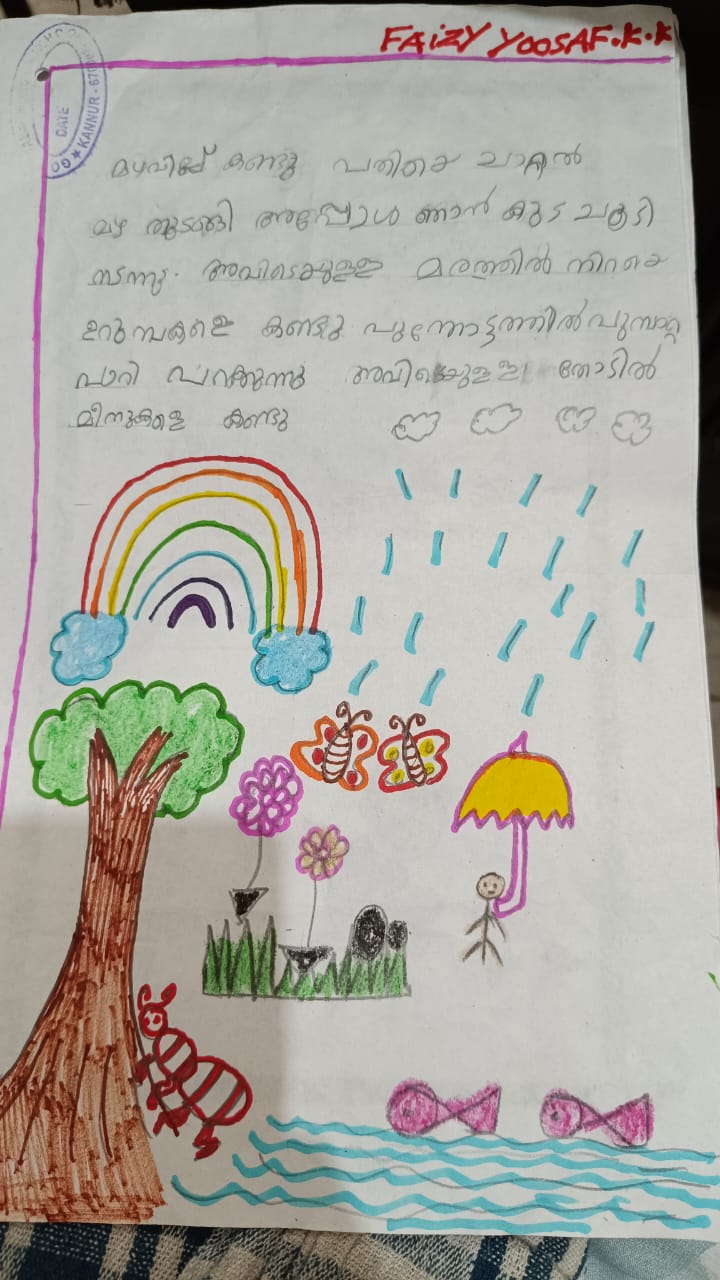 FAiZY YOOSAF.K.K
DATE
KANNUR - 670
മഴവില്ല് കണ്ടു പതിയെ ചാറ്റൽ
മഴ തുടങ്ങി അപ്പോൾ ഞാൻ കുട ചൂടി
നടന്നു. അവിടെയുള്ള മരത്തിൽ നിറയെ
ഉറുമ്പുകളെ കണ്ടു പൂന്തോട്ടത്തിൽ പൂമ്പാറ്റ
പാറി പറക്കുന്നു തോടിൽ
മീനുകളെ കണ്ടു